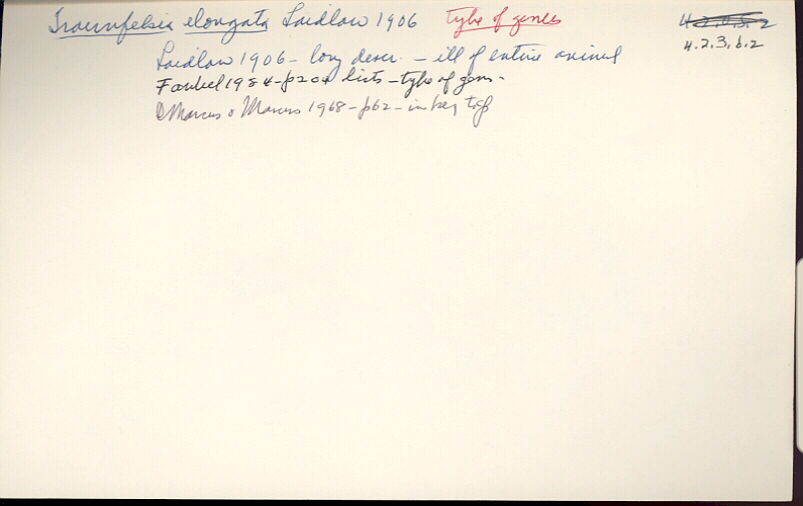 Traunfelsia elongata Laidlaw 1906 type of genus
4.2.3.6.2
Laidlaw 1906 - long descr. - ill of entire animal
Faubel 1984 - p204 lists - type of gen.
Marcus & Marcus 1968 - p62 - in key to